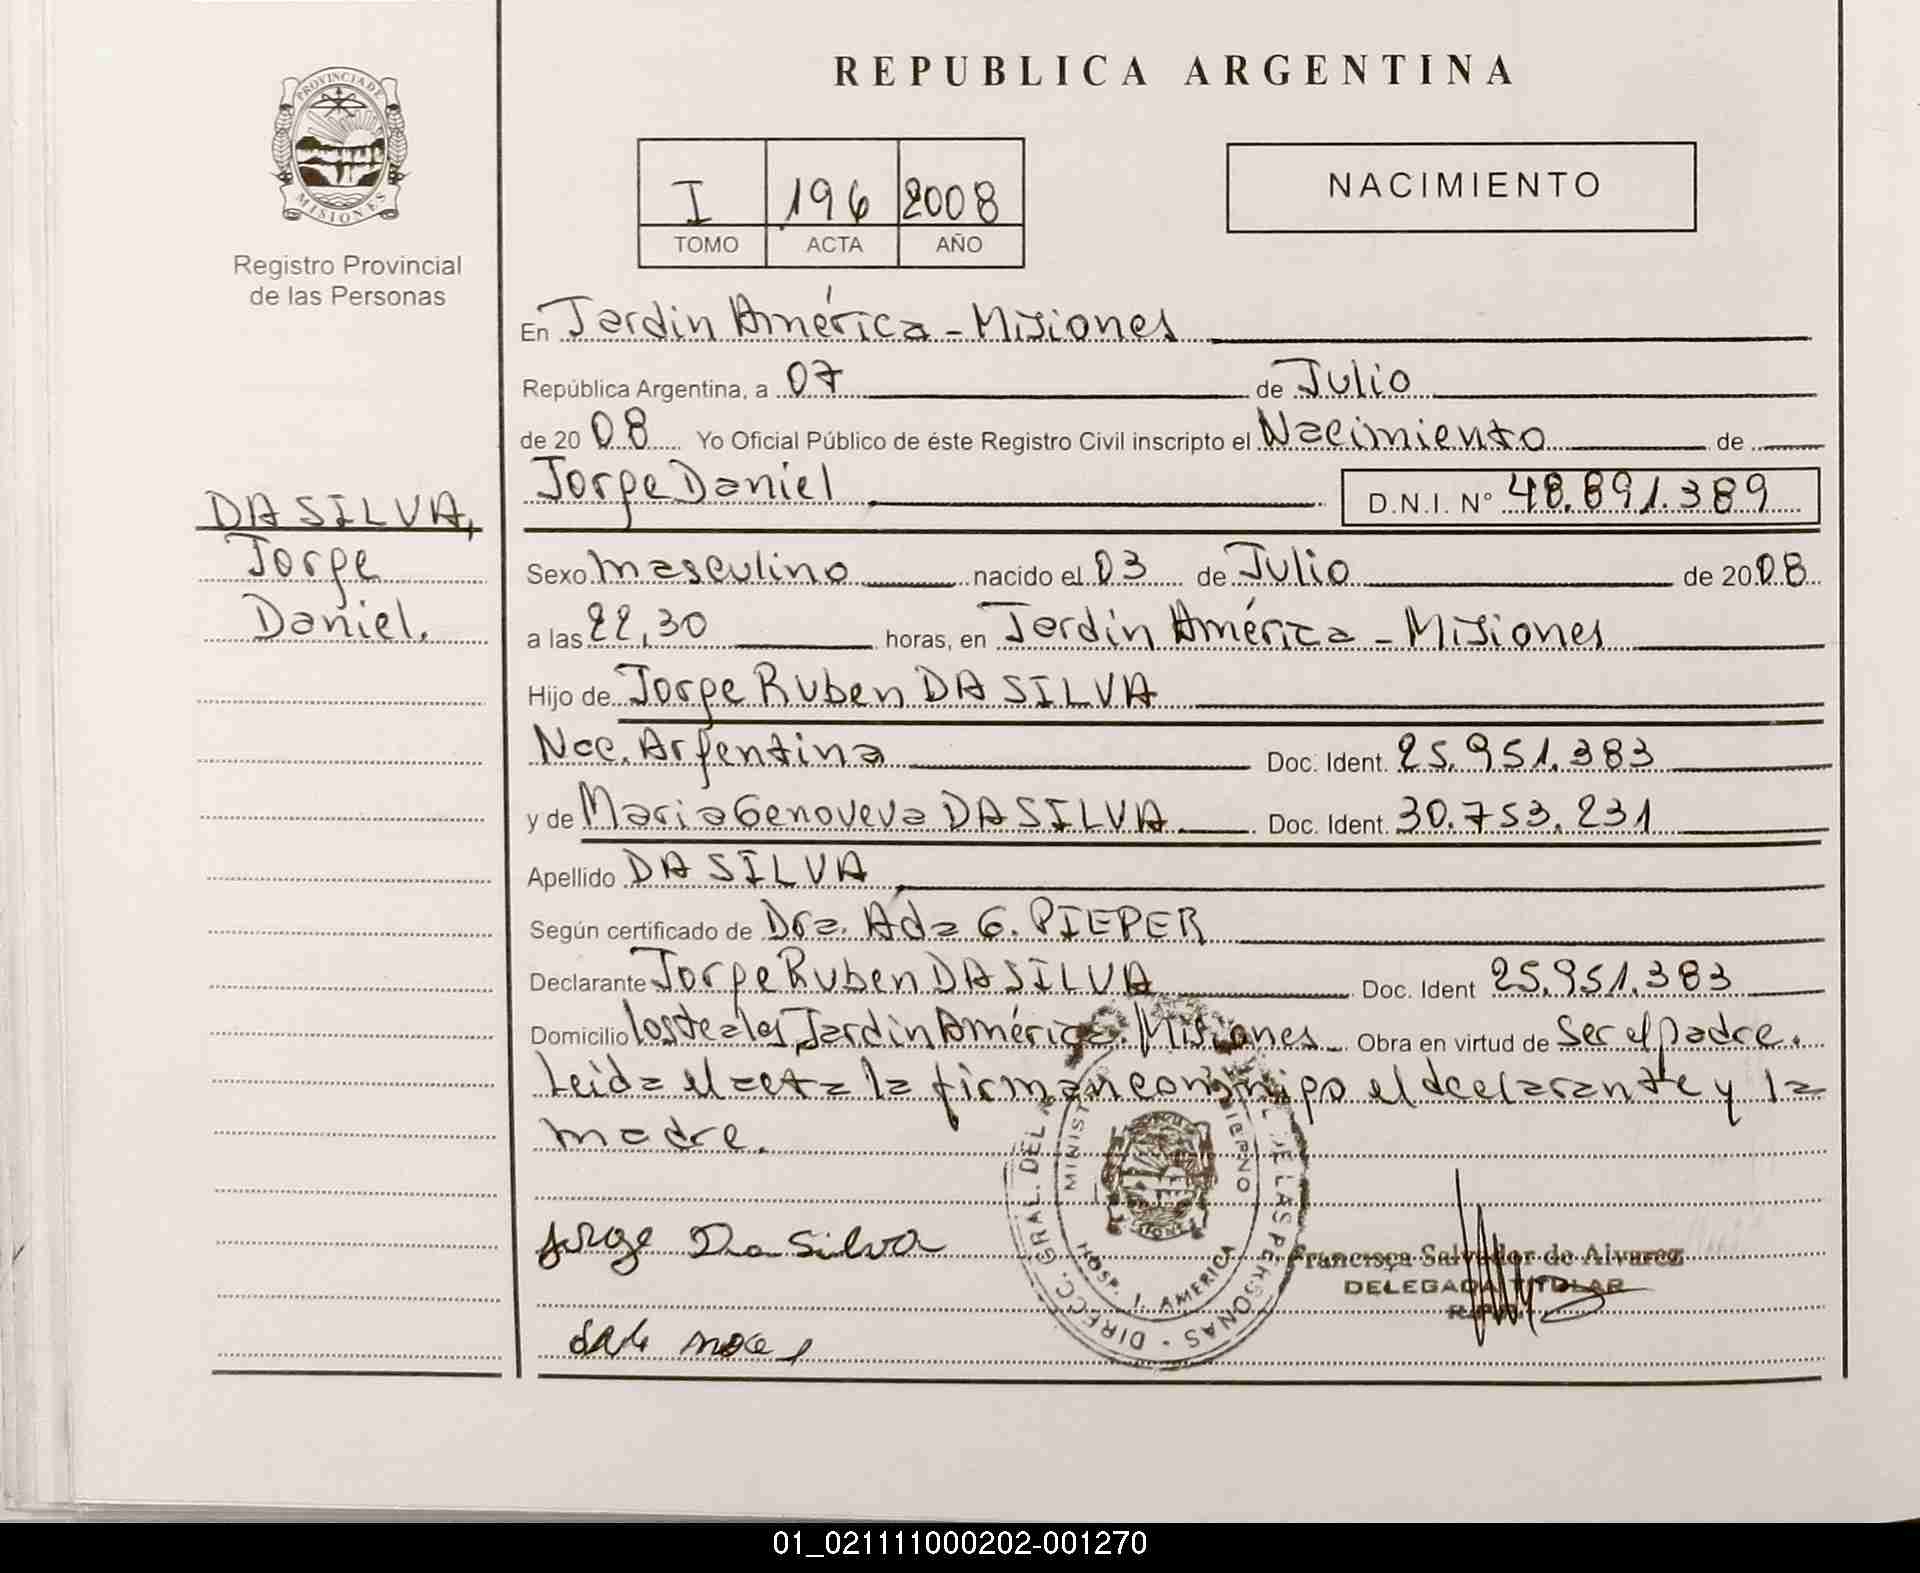 REPUBLICA ARGENTINA
PROVINCIA DE
MISIONES
Registro Provincial
de las Personas
I 196 2008
TOMO ACTA AÑO
NACIMIENTO
En Jardin América - Misiones
República Argentina, a 07 de Julio
de 20 08 Yo Oficial Público de éste Registro Civil inscripto el Nacimiento de
Jorge Daniel D.N.I. Nº 48.891.389
DA SILVA,
Jorge
Daniel.
Sexo masculino nacido el 03 de Julio de 20 08
a las 22,30 horas, en Jardin América - Misiones
Hijo de Jorge Ruben DA SILVA
Nac. Argentina Doc. Ident. 25.951.383
y de Maria Genoveva DA SILVA Doc. Ident. 30.753.231
Apellido DA SILVA
Según certificado de Dra. Ada G. PIEPER
Declarante Jorge Ruben DA SILVA Doc. Ident 25.951.383
Domicilio Jardin América. Misiones Obra en virtud de Ser el padre.
Leida el acta la firman conmigo el declarante y la
madre.
Jorge Da Silva
Francisca Salvador de Alvarez
DELEGADA TITULAR
R.P.P.
DIRECC. GRAL. DEL DE LAS PERSONAS
HOSP. J. AMERICA
01_021111000202-001270